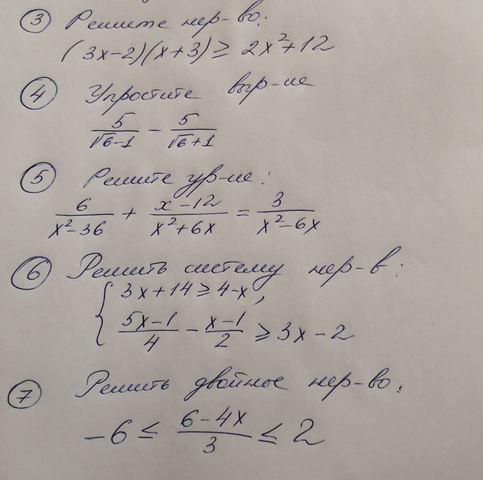 ③ Решите нер-во:
(3x-2)(x+3) ≥ 2x²+12
④ Упростите выр-ие
5/(√6-1) - 5/(√6+1)
⑤ Решите ур-ие:
6/(x²-36) + (x-12)/(x²+6x) = 3/(x²-6x)
⑥ Решить систему нер-в:
{ 3x+14 ≥ 4-x,
(5x-1)/4 - (x-1)/2 ≥ 3x-2
⑦ Решить двойное нер-во:
-6 ≤ (6-4x)/3 ≤ 2